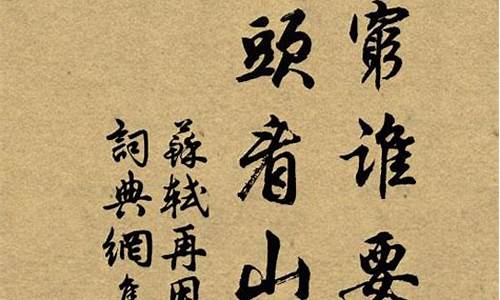 窮谁要
頭看山
蘇軾再因
詞典網